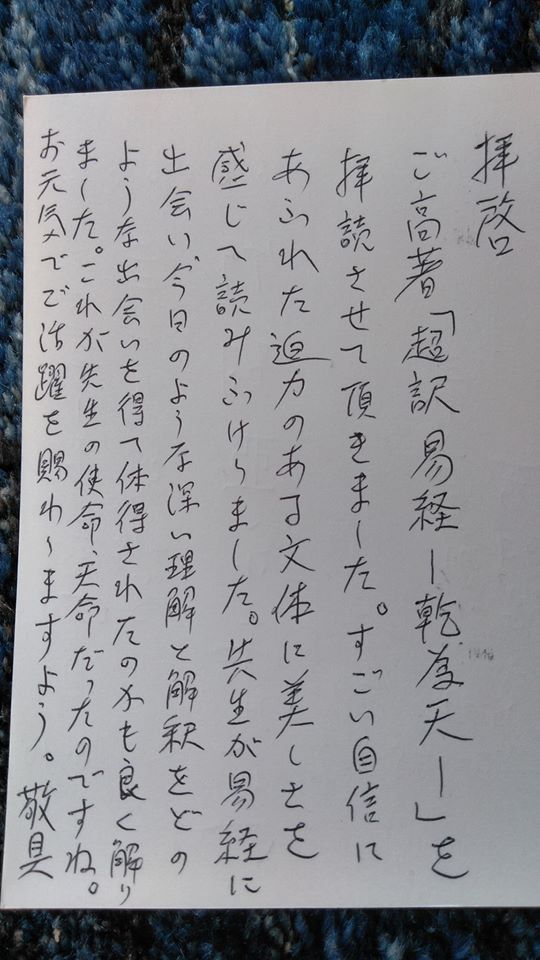 拝啓
ご高著「超訳 易経 ー乾為天ー」を
拝読させて頂きました。すごい自信に
あふれた迫力のある文体に美しさを
感じて読みふけりました。先生が易経に
出会い、今日のような深い理解と解釈をどの
ような出会いを得て体得されたのかも良く解り
ました。これが先生の使命、天命だったのですね。
お元気でご活躍を賜わりますよう。敬具